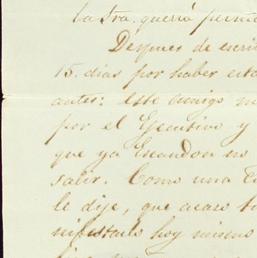 la Sra. queria permi
Despues de escri
15. dias por haber esta
antes: este amigo m
por el Ejecutivo y
que ya Escandon no
salir. Como una
le dije, que acaso
nifestarle hoy mismo